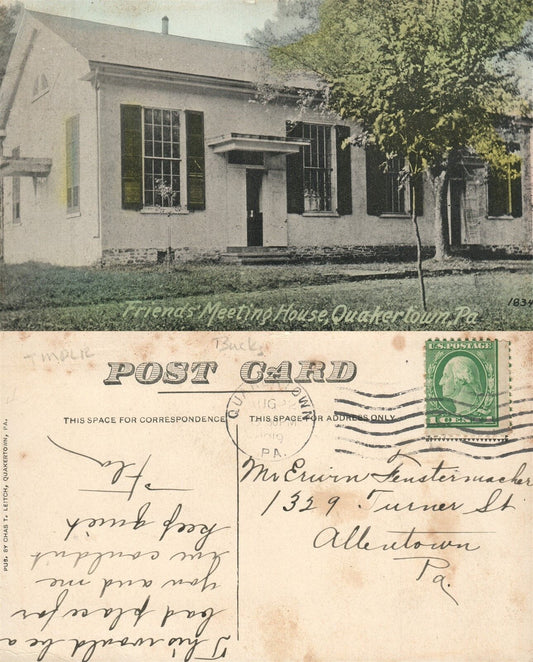 Friends' Meeting House, Quakertown, Pa.
1834
Bucks
POST CARD
THIS SPACE FOR CORRESPONDENCE
THIS SPACE FOR ADDRESS ONLY
PUB. BY CHAS T. LEITCH, QUAKERTOWN, PA.
QUAKERTOWN
PA.
U.S. POSTAGE
1 CENT 1
Mr Erwin Fenstermacher
1329 Turner St
Allentown
Pa.
This would be a
bad place for
you and me
we couldn't
keep quiet
Fla